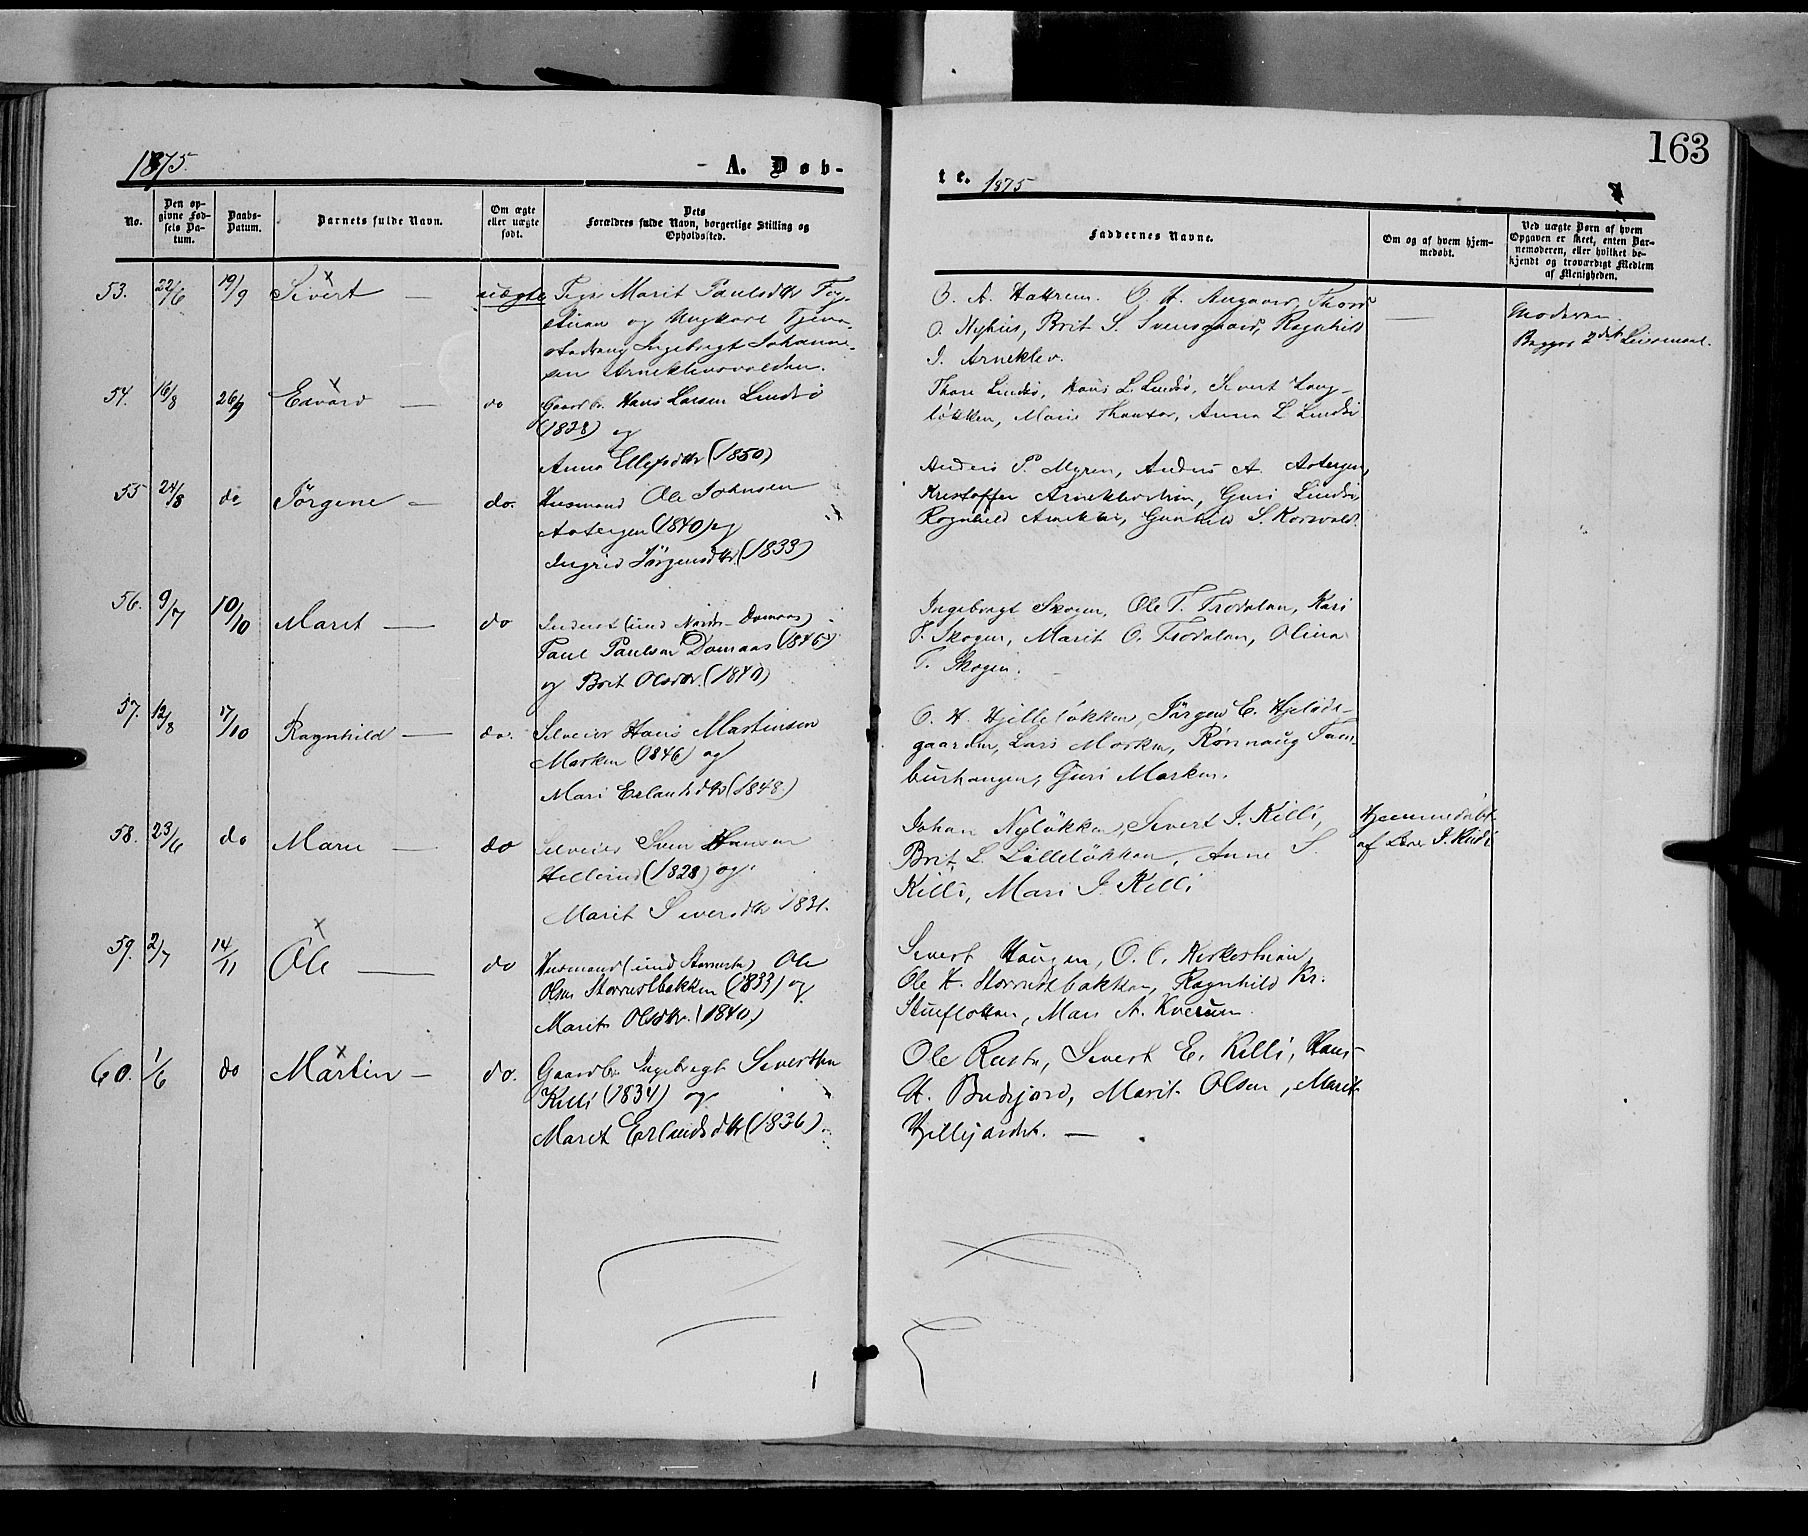 163
1875.
- A. Døb-
te. 1875
No.
Den op-
givne Fød-
sels Da-
tum.
Daabs-
Datum.
Barnets fulde Navn.
Om ægte
eller uægte
født.
Dets
Forældres fulde Navn, borgerlige Stilling og
Opholdssted.
Faddernes Navne.
Om og af hvem hjem-
medøbt.
Ved uægte Børn af hvem
Opgaven er skeet, enten Bar-
nemoderen, eller hvilket be-
kjendt og troværdigt Medlem
af Menigheden.
53. 22/6 19/9 Sivert — uægte Pige Marit Paulsdtr
og Ungkarl
Ingebregt Johanne-
sen Arneklevsvolden.
O. A. Hattrem. O. H. Angaard, Thore
O. Nyhus, Brit S. Svensgaard, Ragnhild
I. Arneklev.
—
Moderen.
Begges 2det Leiermaal.
54. 16/8 26/9 Edvard — do Gaardbr. Hans Larsen Lindsø
(1828) og
Anna Ellefsdtr (1850)
Thore Lindsø, Hans L. Lindsø, Sivert Lang-
løkken, Marie Anna L. Lindsø
55 24/8 do Jørgine — do. Husmand Ole Johnsen
(1840) og
Ingrid Jørgensdtr. (1833)
Anders P. Myren, Anders A.
Kristoffer Guri Lindsø
Ragnhild Gunhild S.
56. 9/7 10/10 Marit — do Inderst (und Nordre Domaas)
Paul Paulsen Domaas (1846)
og Brit Olsdtr. (1840)
Ingebregt Skogen, Ole T. Trodalen, Kari
T. Skogen, Marit O. Trodalen, Olina
T. Skogen.
57. 12/8 17/10 Ragnhild — do. Selveier Hans Martinsen
Marken (1846) og
Mari Erlandsdtr (1848.)
O. H. Hjelleløkken, Jørgen E.
gaarden, Lars Marken, Rønnaug Tam-
burhaugen, Guri Marken.
58. 23/6 do Mari — do Selveier Sven Hansen
(1828) og
Marit Siversdtr 1831.
Johan Nyløkken, Sivert I. Killi,
Brit L. Lilleløkken, Anne S.
Killi, Mari I. Killi
Hjemmedøbt
af
59. 2/7 14/11 Ole — do Husmand (und ) Ole
Olsen Storrustbakken (1833) og
Marit Olsdtr. (1840.)
Sivert Haugen, O. O. Kirkestuen
Ole H. Storrustbakken, Ragnhild Kr.
Stueflotten, Mari A.
60. 1/6 do Martin — do. Gaardbr Ingebregt Sivertsen
Killi (1834) og
Marit Erlandsdtr (1836)
Ole Rusten, Sivert E. Killi, Hans
H. Budsjord, Marit Olsen, Marit
Hjellejordet. —